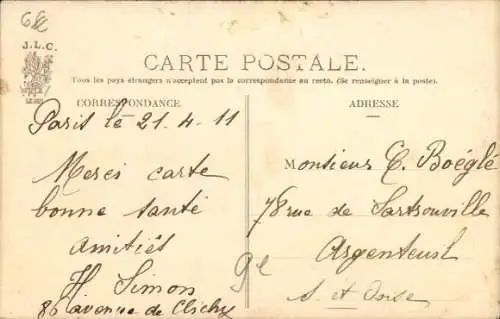 J.L.C.
CARTE POSTALE.
Tous les pays étrangers n'acceptent pas la correspondance au recto. (Se renseigner à la poste).
CORRESPONDANCE
Paris le 21-4-11
Merci carte
bonne santé
amitiés
H Simon
86 avenue de Clichy
ADRESSE
Monsieur C. Boéglé
78 rue de Sartrouville
Argenteuil
S. et Oise